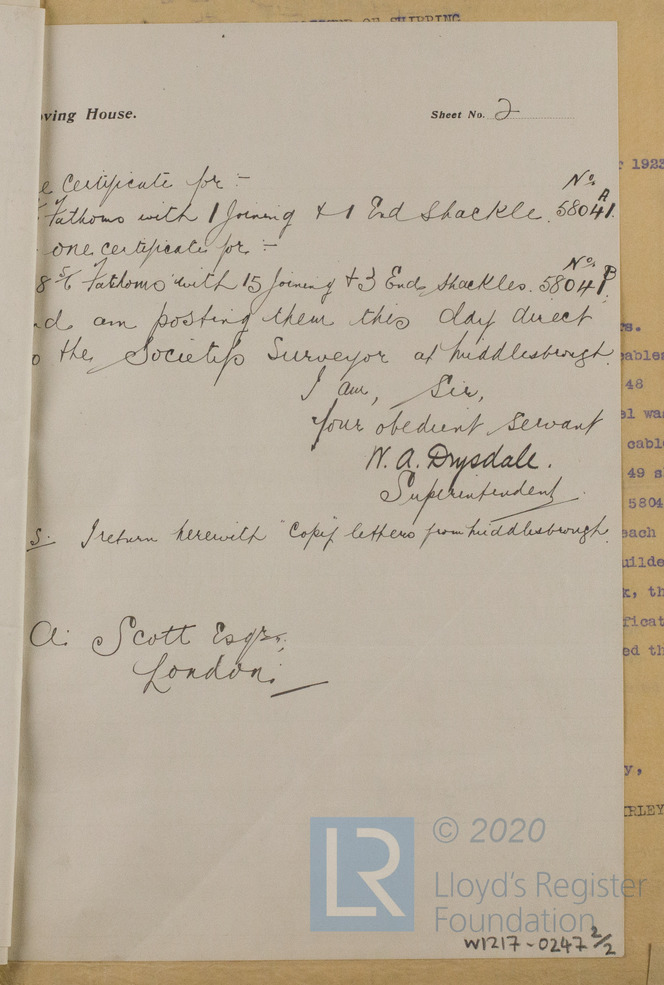 OF SHIPPING
ving House.
Sheet No. 2
e Certificate for :-
No. A
Fathoms with 1 Joining & 1 End Shackle. 58041.
one certificate for :-
No. B
8 Fathoms with 15 Joining & 3 End Shackles. 58041.
d am posting them this day direct
o the Society's Surveyor at Middlesbrough.
I am, Sir,
Your obedient servant
W. A. Drysdale.
Superintendent.
S. I return herewith "copy" letters from Middlesbrough.
A. Scott Esqre.,
London.
1923
s.
ables
48
el was
cable
49 s
5804
each
uilde
k, th
ficat
ed th
y,
RLEY
LR
© 2020
Lloyd's Register
Foundation
W1217-0247 2/2